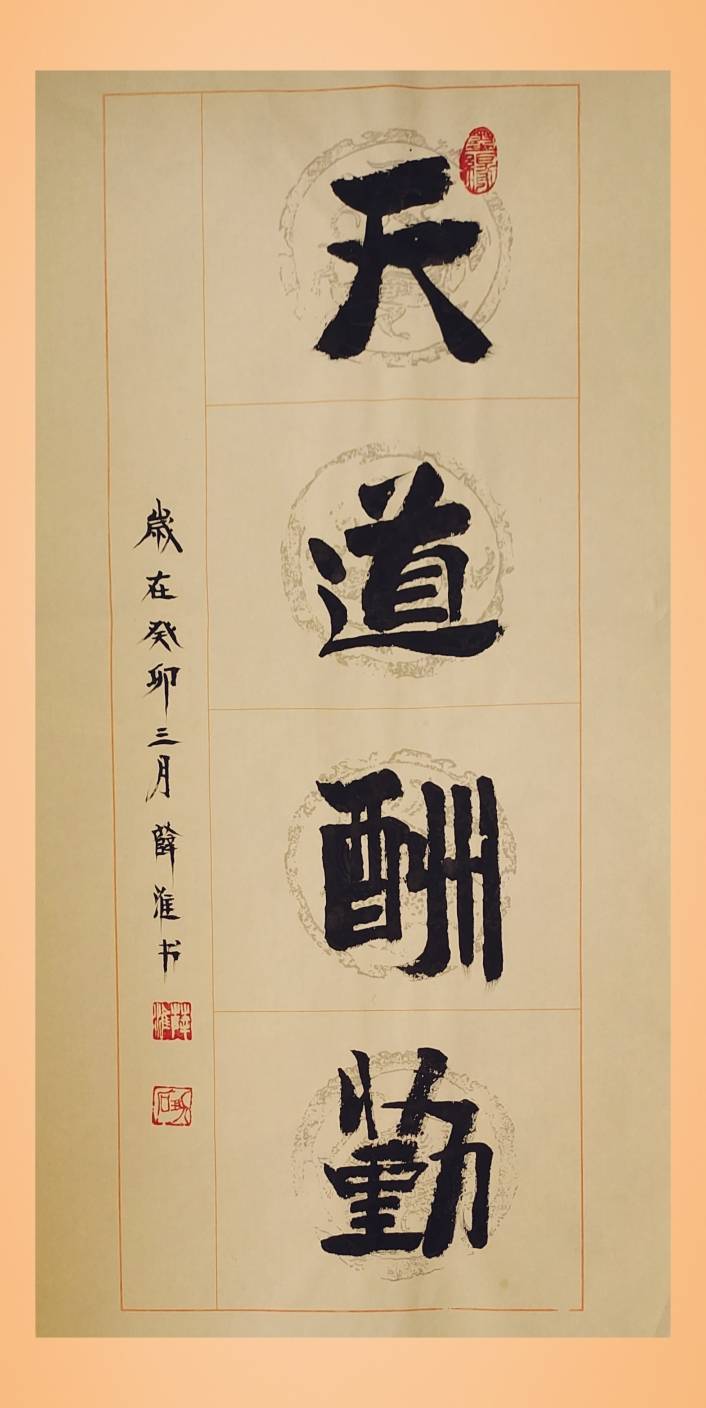 天道酬勤
歲在癸卯三月薛淮书
薛淮